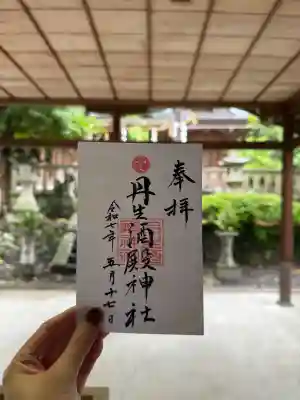 奉拝
丹生酒殿神社
令和七年 五月十七日